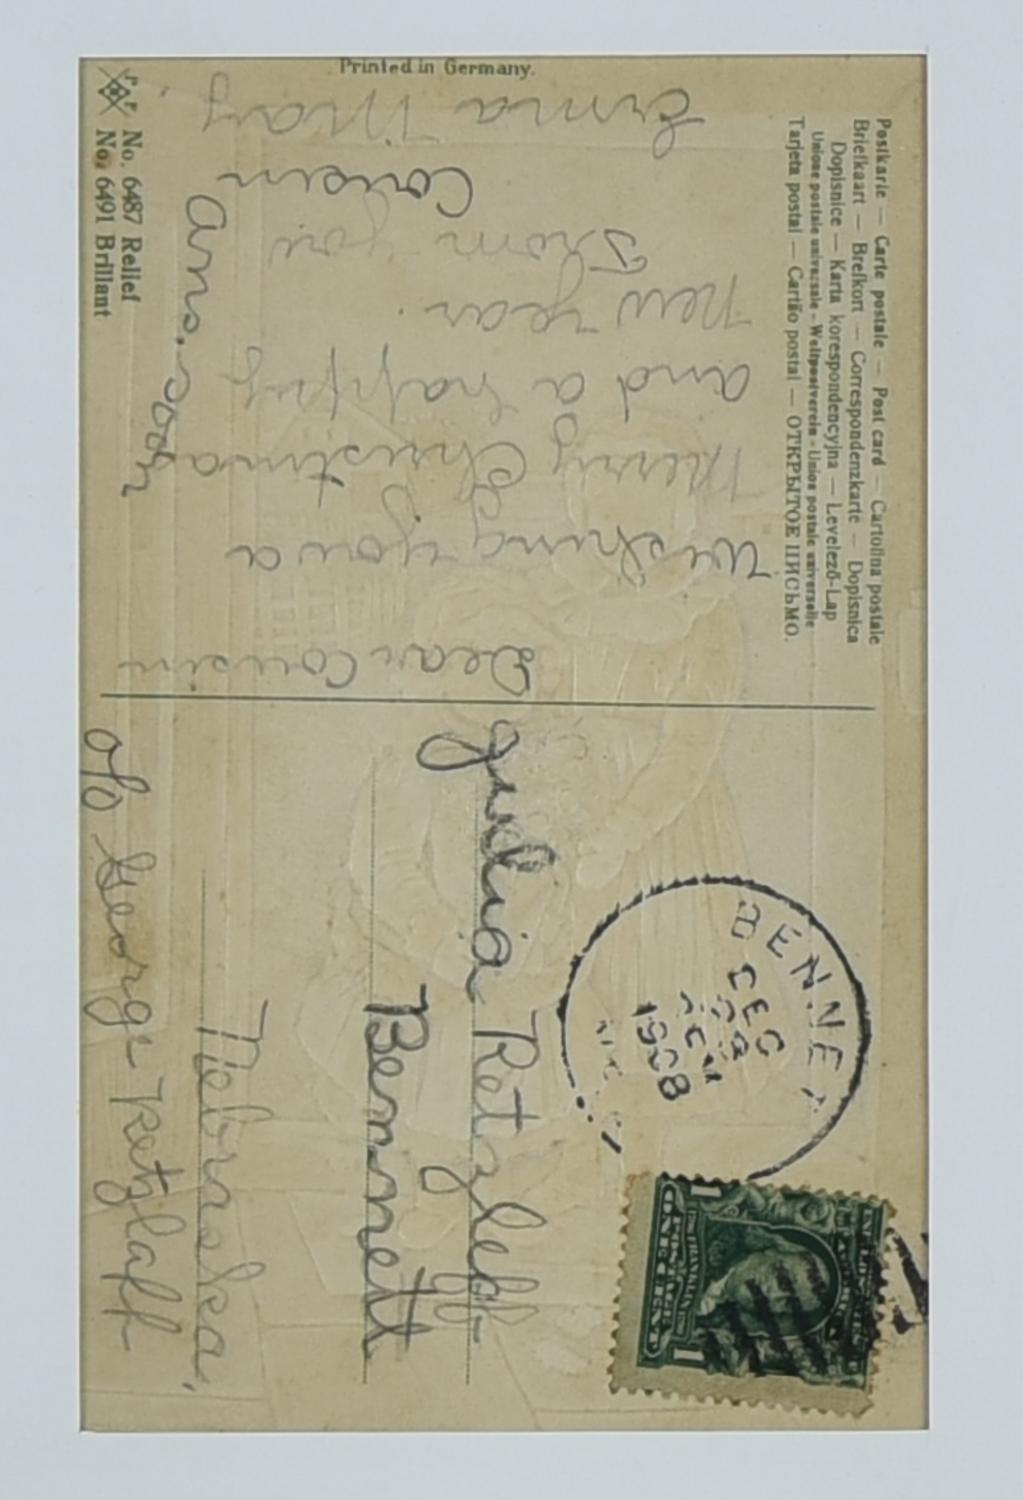 Postkarte — Carte postale — Post card — Cartolina postale
Briefkaart — Brefkort — Correspondenzkarte — Dopisnica
Dopisnice — Karta korespondencyjna — Levelező-Lap
Unione postale universale - Weltpostverein - Union postale universelle
Tarjeta postal — Cartão postal — ОТКРЫТОЕ ПИСЬМО.
Dear Cousin
Wishing you a
Merry Christmas
and a happy
New Year.
From You
Cousin
Erma May.
Ans. soon
Printed in Germany.
P. F.
No. 6487 Relief
No. 6491 Brillant
BENNET
DEC
1908
1 1
ONE CENT
Julia Retzleff
Bennett
Nebraska,
c/o George Retzlaff